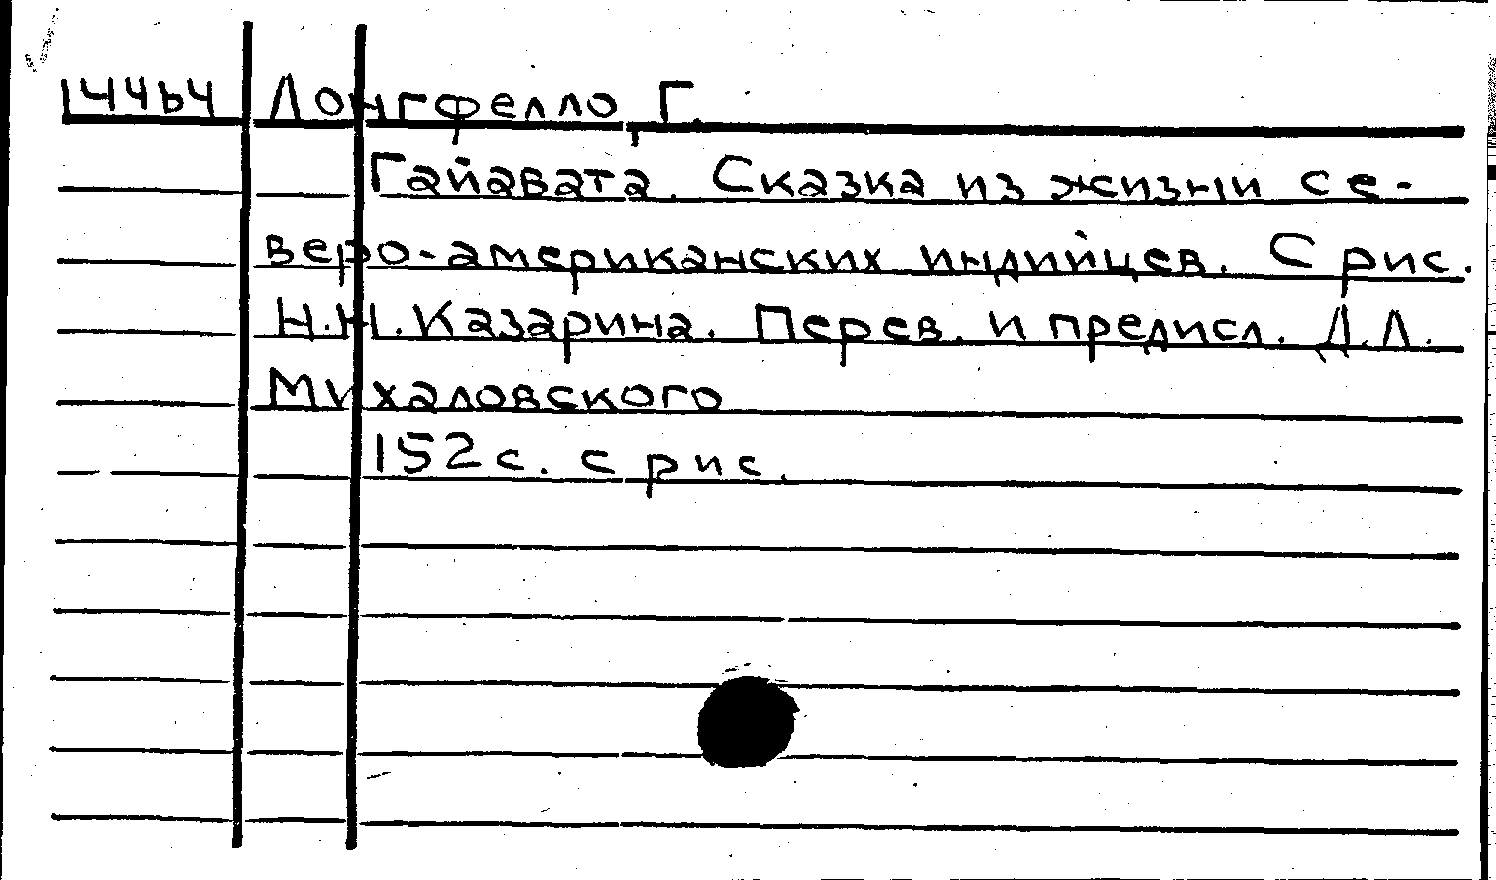 14464 Лонгфелло, Г.
Гайавата. Сказка из жизни се-
веро-американских индийцев. С рис.
Н.Н. Казарина. Перев. и предисл. Д.Л.
Михаловского
152 с. с рис.